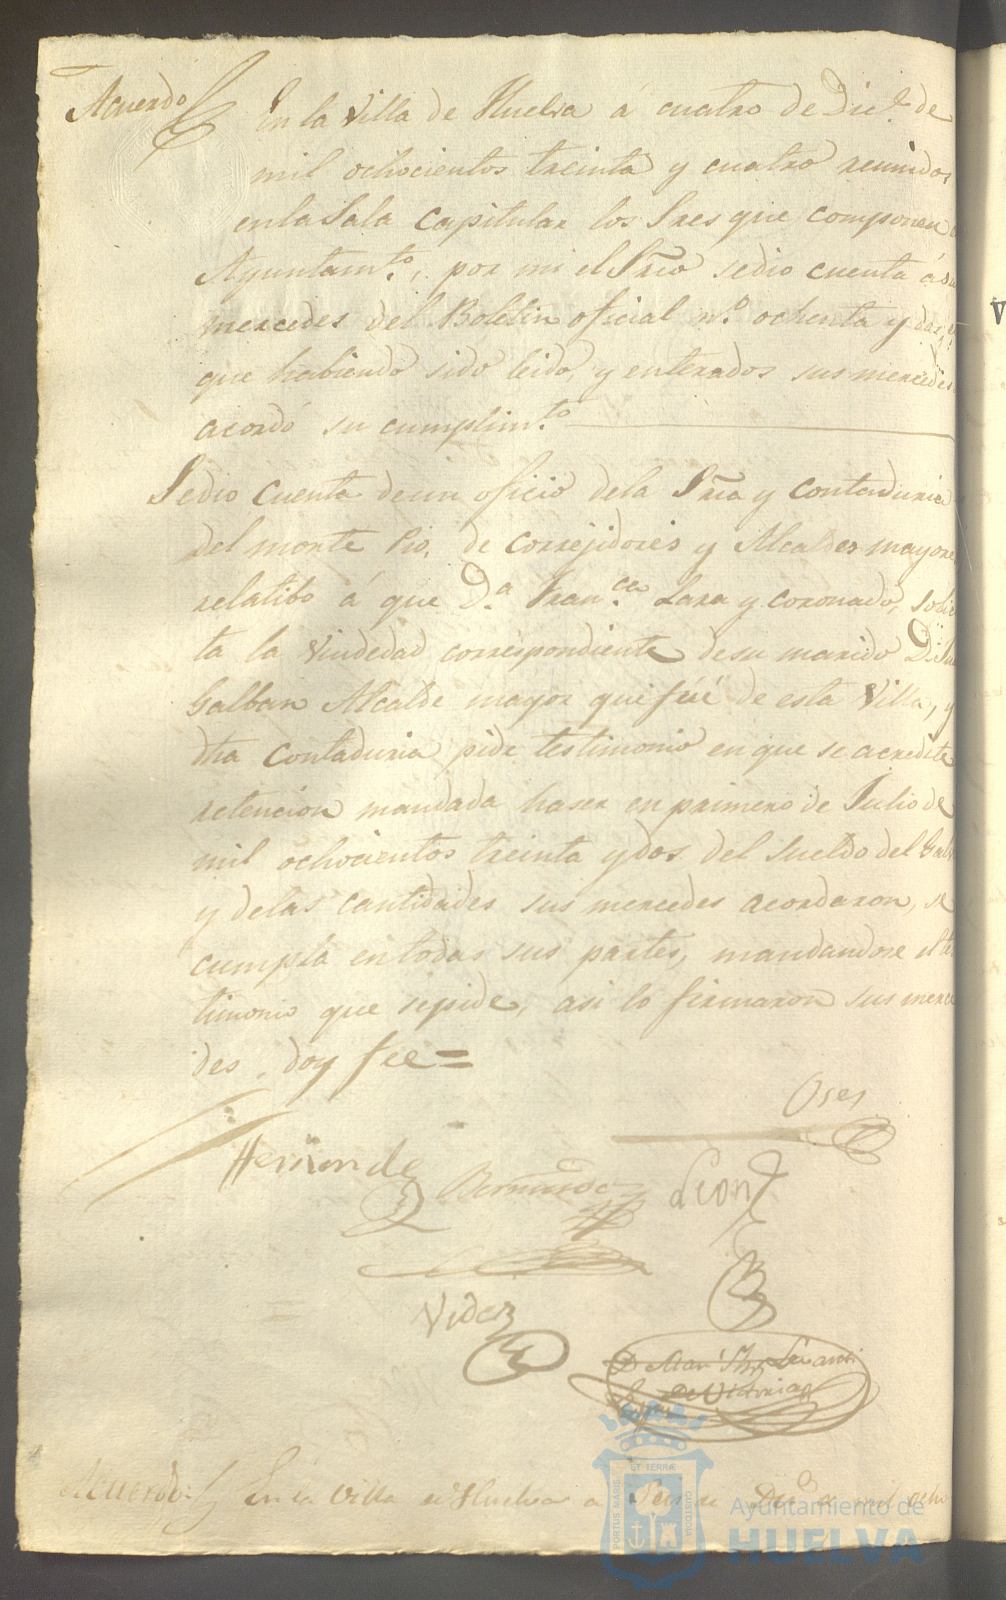 Acuerdo En la Villa de Huelva á cuatro de Dice. de
mil ochocientos treinta y cuatro reunidos
en la Sala Capitular los Sres que componen
Ayuntamto., por mi el Srio se dio cuenta á su
mercedes del Boletin oficial no. ochenta y dos,
que habiendo sido leido, y enterados sus mercedes
acordó su cumplimto.
Se dio cuenta de un oficio de la Sria y contaduria
del monte Pio, de correjidores y Alcaldes mayores
relatibo á que Da. Franca. Lara y coronado, solici
ta la Viudedad correspondiente de su marido Dn.
Galban Alcalde mayor que fué de esta Villa, y
dha Contaduria pide testimonio en que se acredite
retencion mandada haser en primero de Julio de
mil ochocientos treinta y dos del Sueldo del
y de las cantidades sus mercedes acordaron, se
cumpla en todas sus partes, mandandose el tes
timonio que se pide, asi lo firmaron sus merce
des, doy fee=
Oses
Hernande
Bermudez
Leon
Videz
D
de Victoria
Acuerdo En la Villa de Huelva a de mil ocho
V
PORTUS MARIS
ET TERRÆ
CUSTODIA
Ayuntamiento de
HUELVA